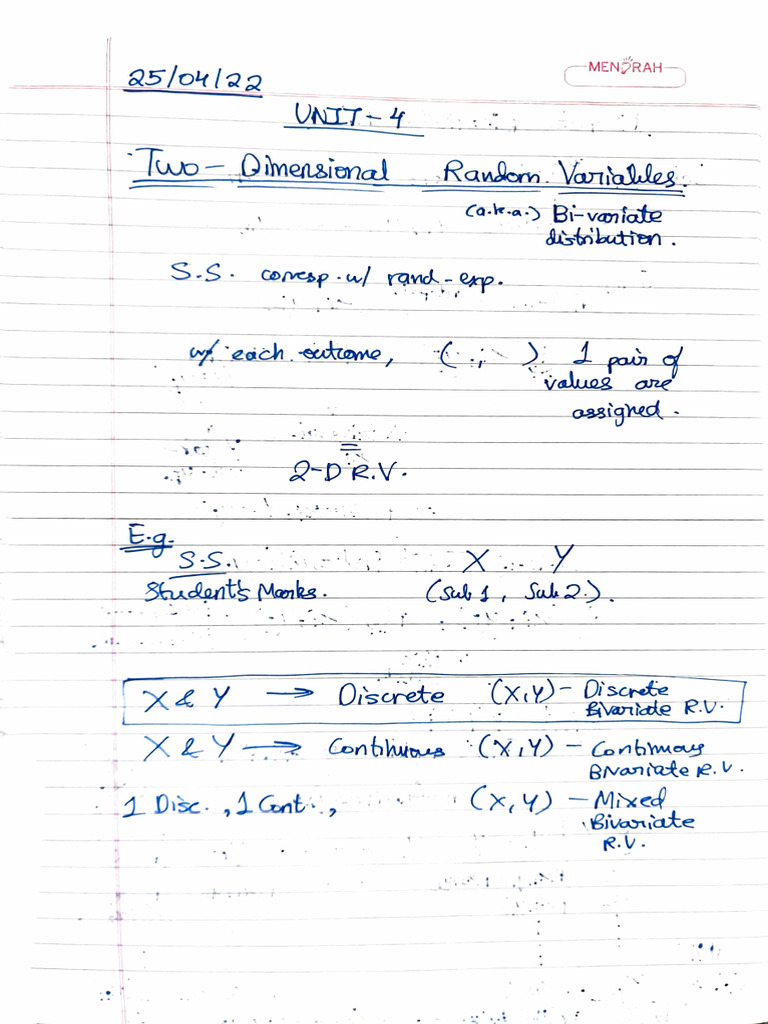 MENORAH
25/04/22
UNIT-4
Two-Dimensional Random Variables.
(a.k.a.) Bi-variate
distribution.
S.S. corresp. w/ rand-exp.
w/ each outcome, ( , ) 1 pair of
values are
assigned.
=
2-D R.V.
E.g.
S.S. X Y
Student's Marks. (Sub 1, Sub 2.).
X & Y → Discrete (X,Y) - Discrete
Bivariate R.V.
X & Y → Continuous (X,Y) - Continuous
Bivariate R.V.
1 Disc., 1 Cont., (X,Y) - Mixed
Bivariate
R.V.